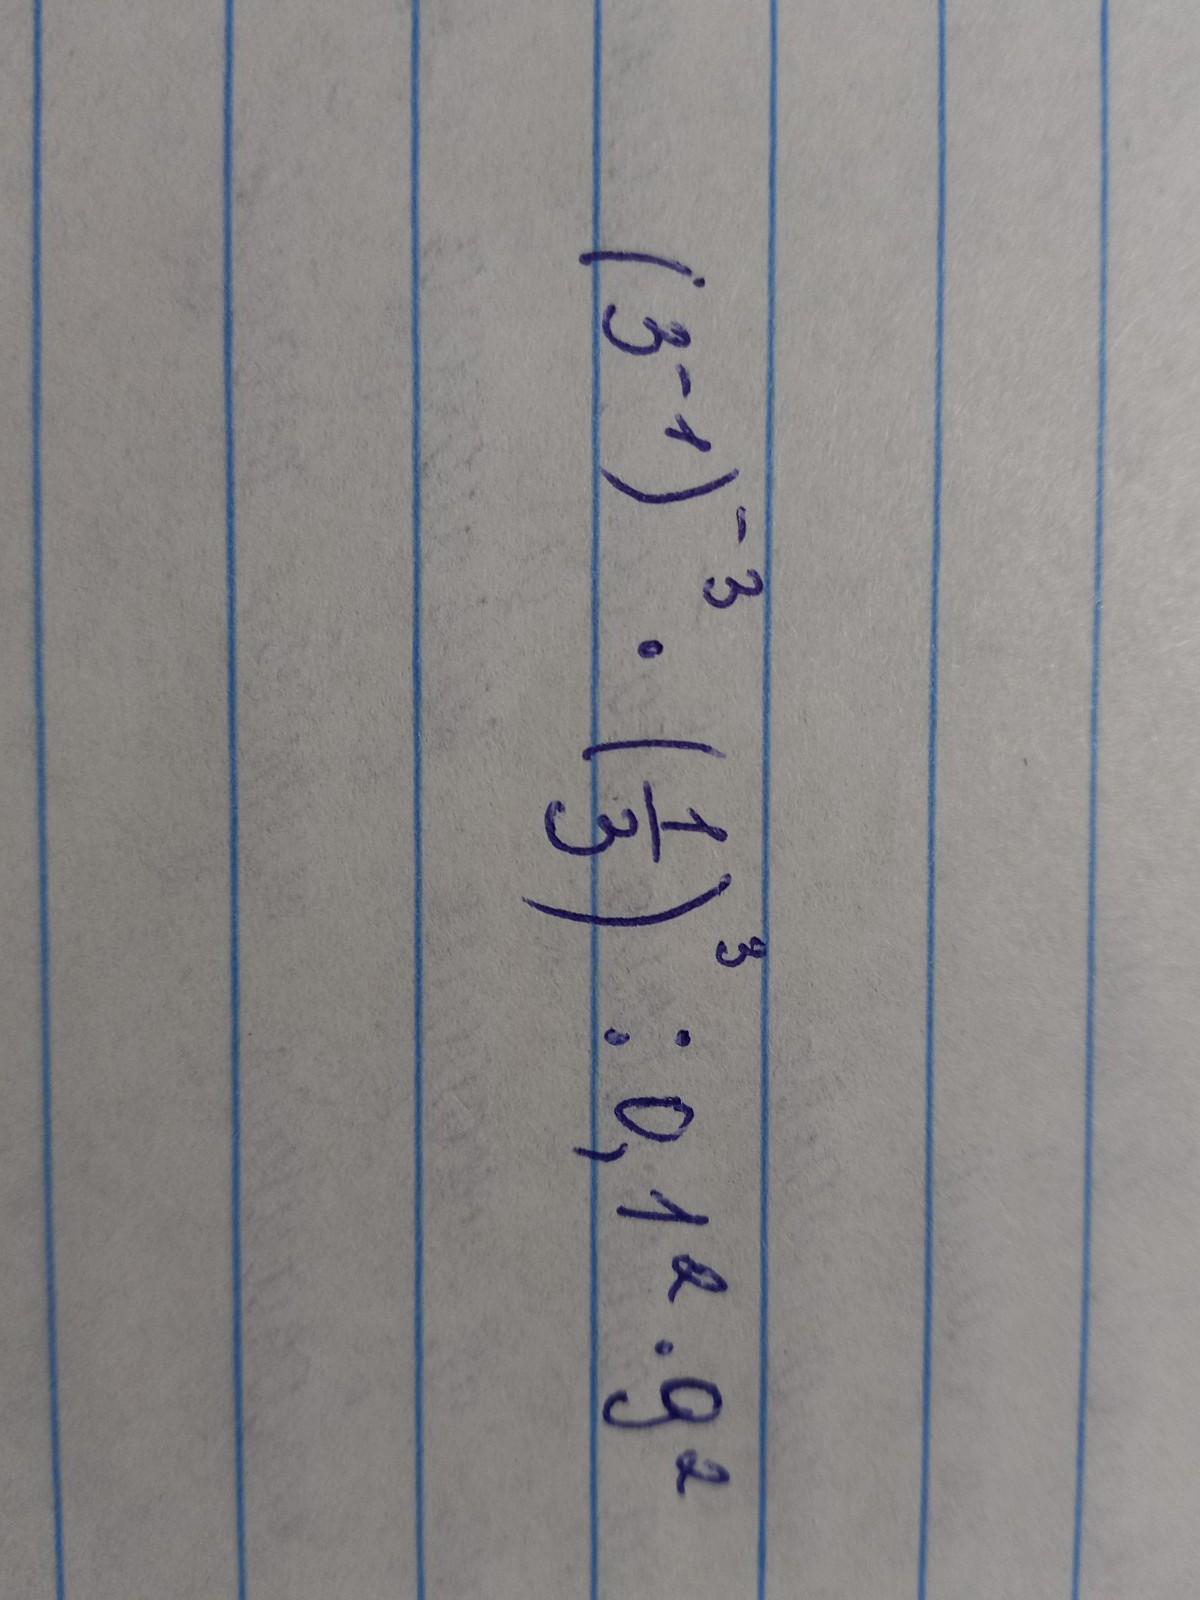 (3⁻¹)⁻³ · (1/3)³ : 0,1² · 9²